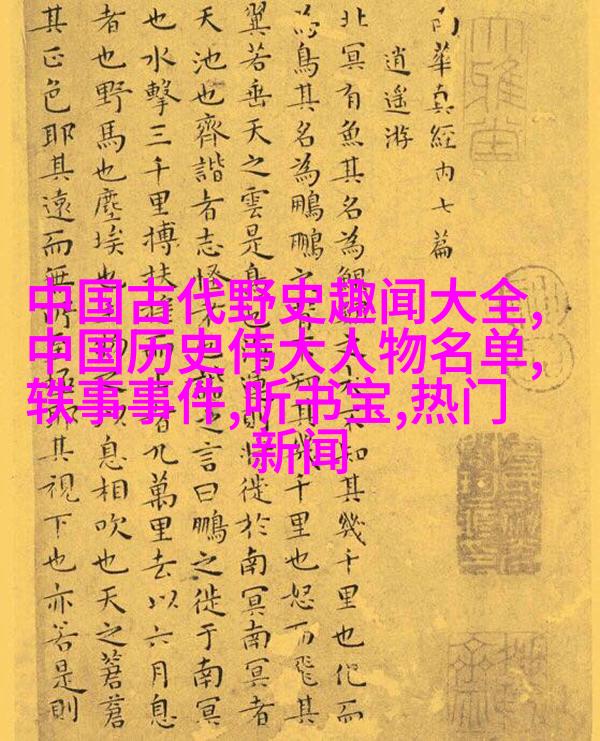 中国古代野史趣闻大全,
中国历史伟大人物名单,
轶事事件,听书宝,热门
新闻
南華真經內七篇
逍遙游
北冥有魚其名為鯤知其幾千里也化而
為鳥其名為鵬鵬之知其幾千里也怒而飛其
翼若垂天之雲是鳥也則將徙於南冥南冥者
天池也齊諧者志怪者也之言曰鵬之徙于南冥
也水擊三千里摶扶搖而九萬里去以六月息
者也野馬也塵埃也以息相吹也天之蒼蒼
其正色耶其遠而無所極耶其視下也亦若是則
大雅堂